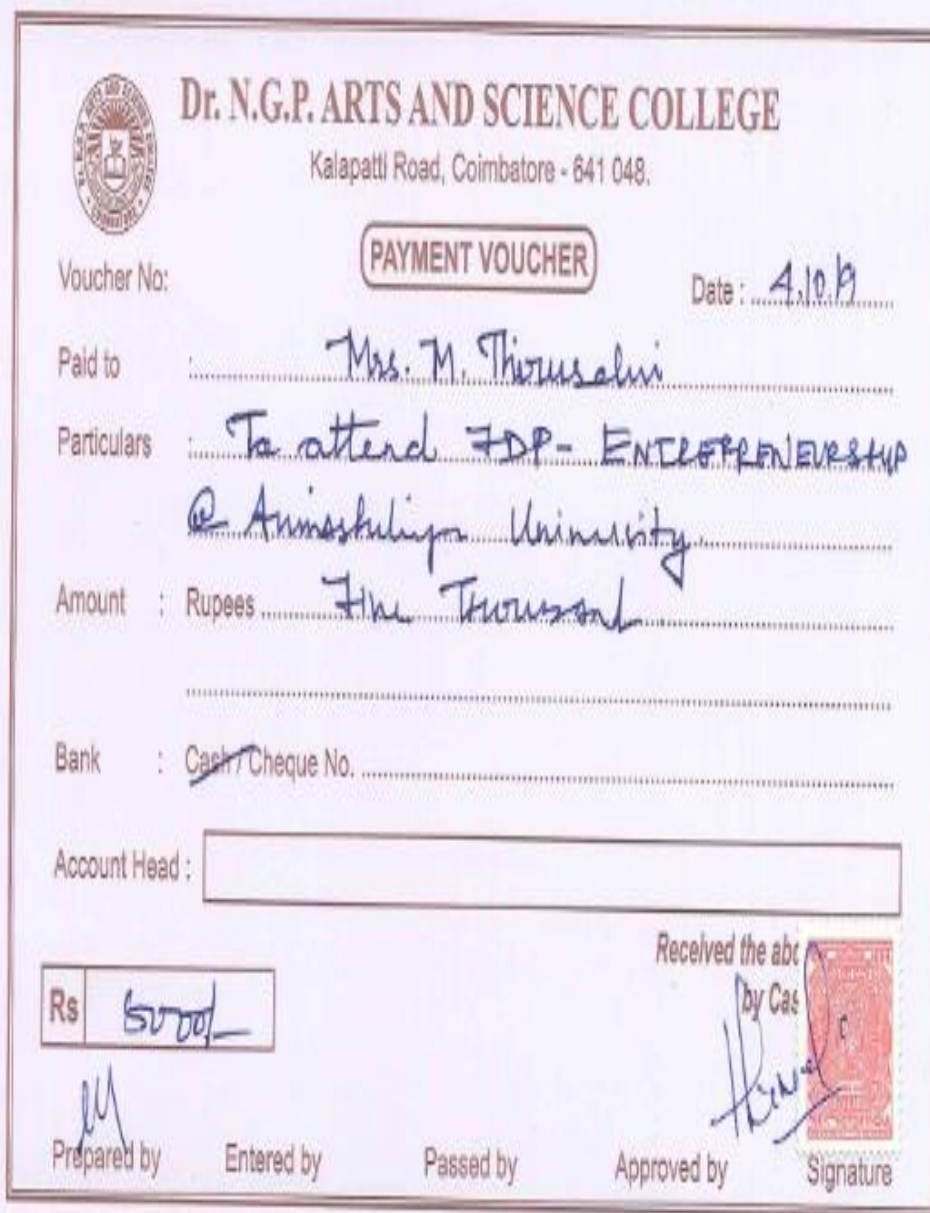 Dr. N.G.P. ARTS AND SCIENCE COLLEGE
Kalapatti Road, Coimbatore - 641 048.
PAYMENT VOUCHER
Voucher No:
Date : 4.10.19
Paid to : Mrs. M. Thiruselvi
Particulars : To attend FDP - ENTREPRENEURSHIP
@ University
Amount : Rupees Five Thousand
Bank : Cash / Cheque No.
Account Head :
Received the abo
by Cas
Rs 5000/-
Prepared by Entered by Passed by Approved by Signature